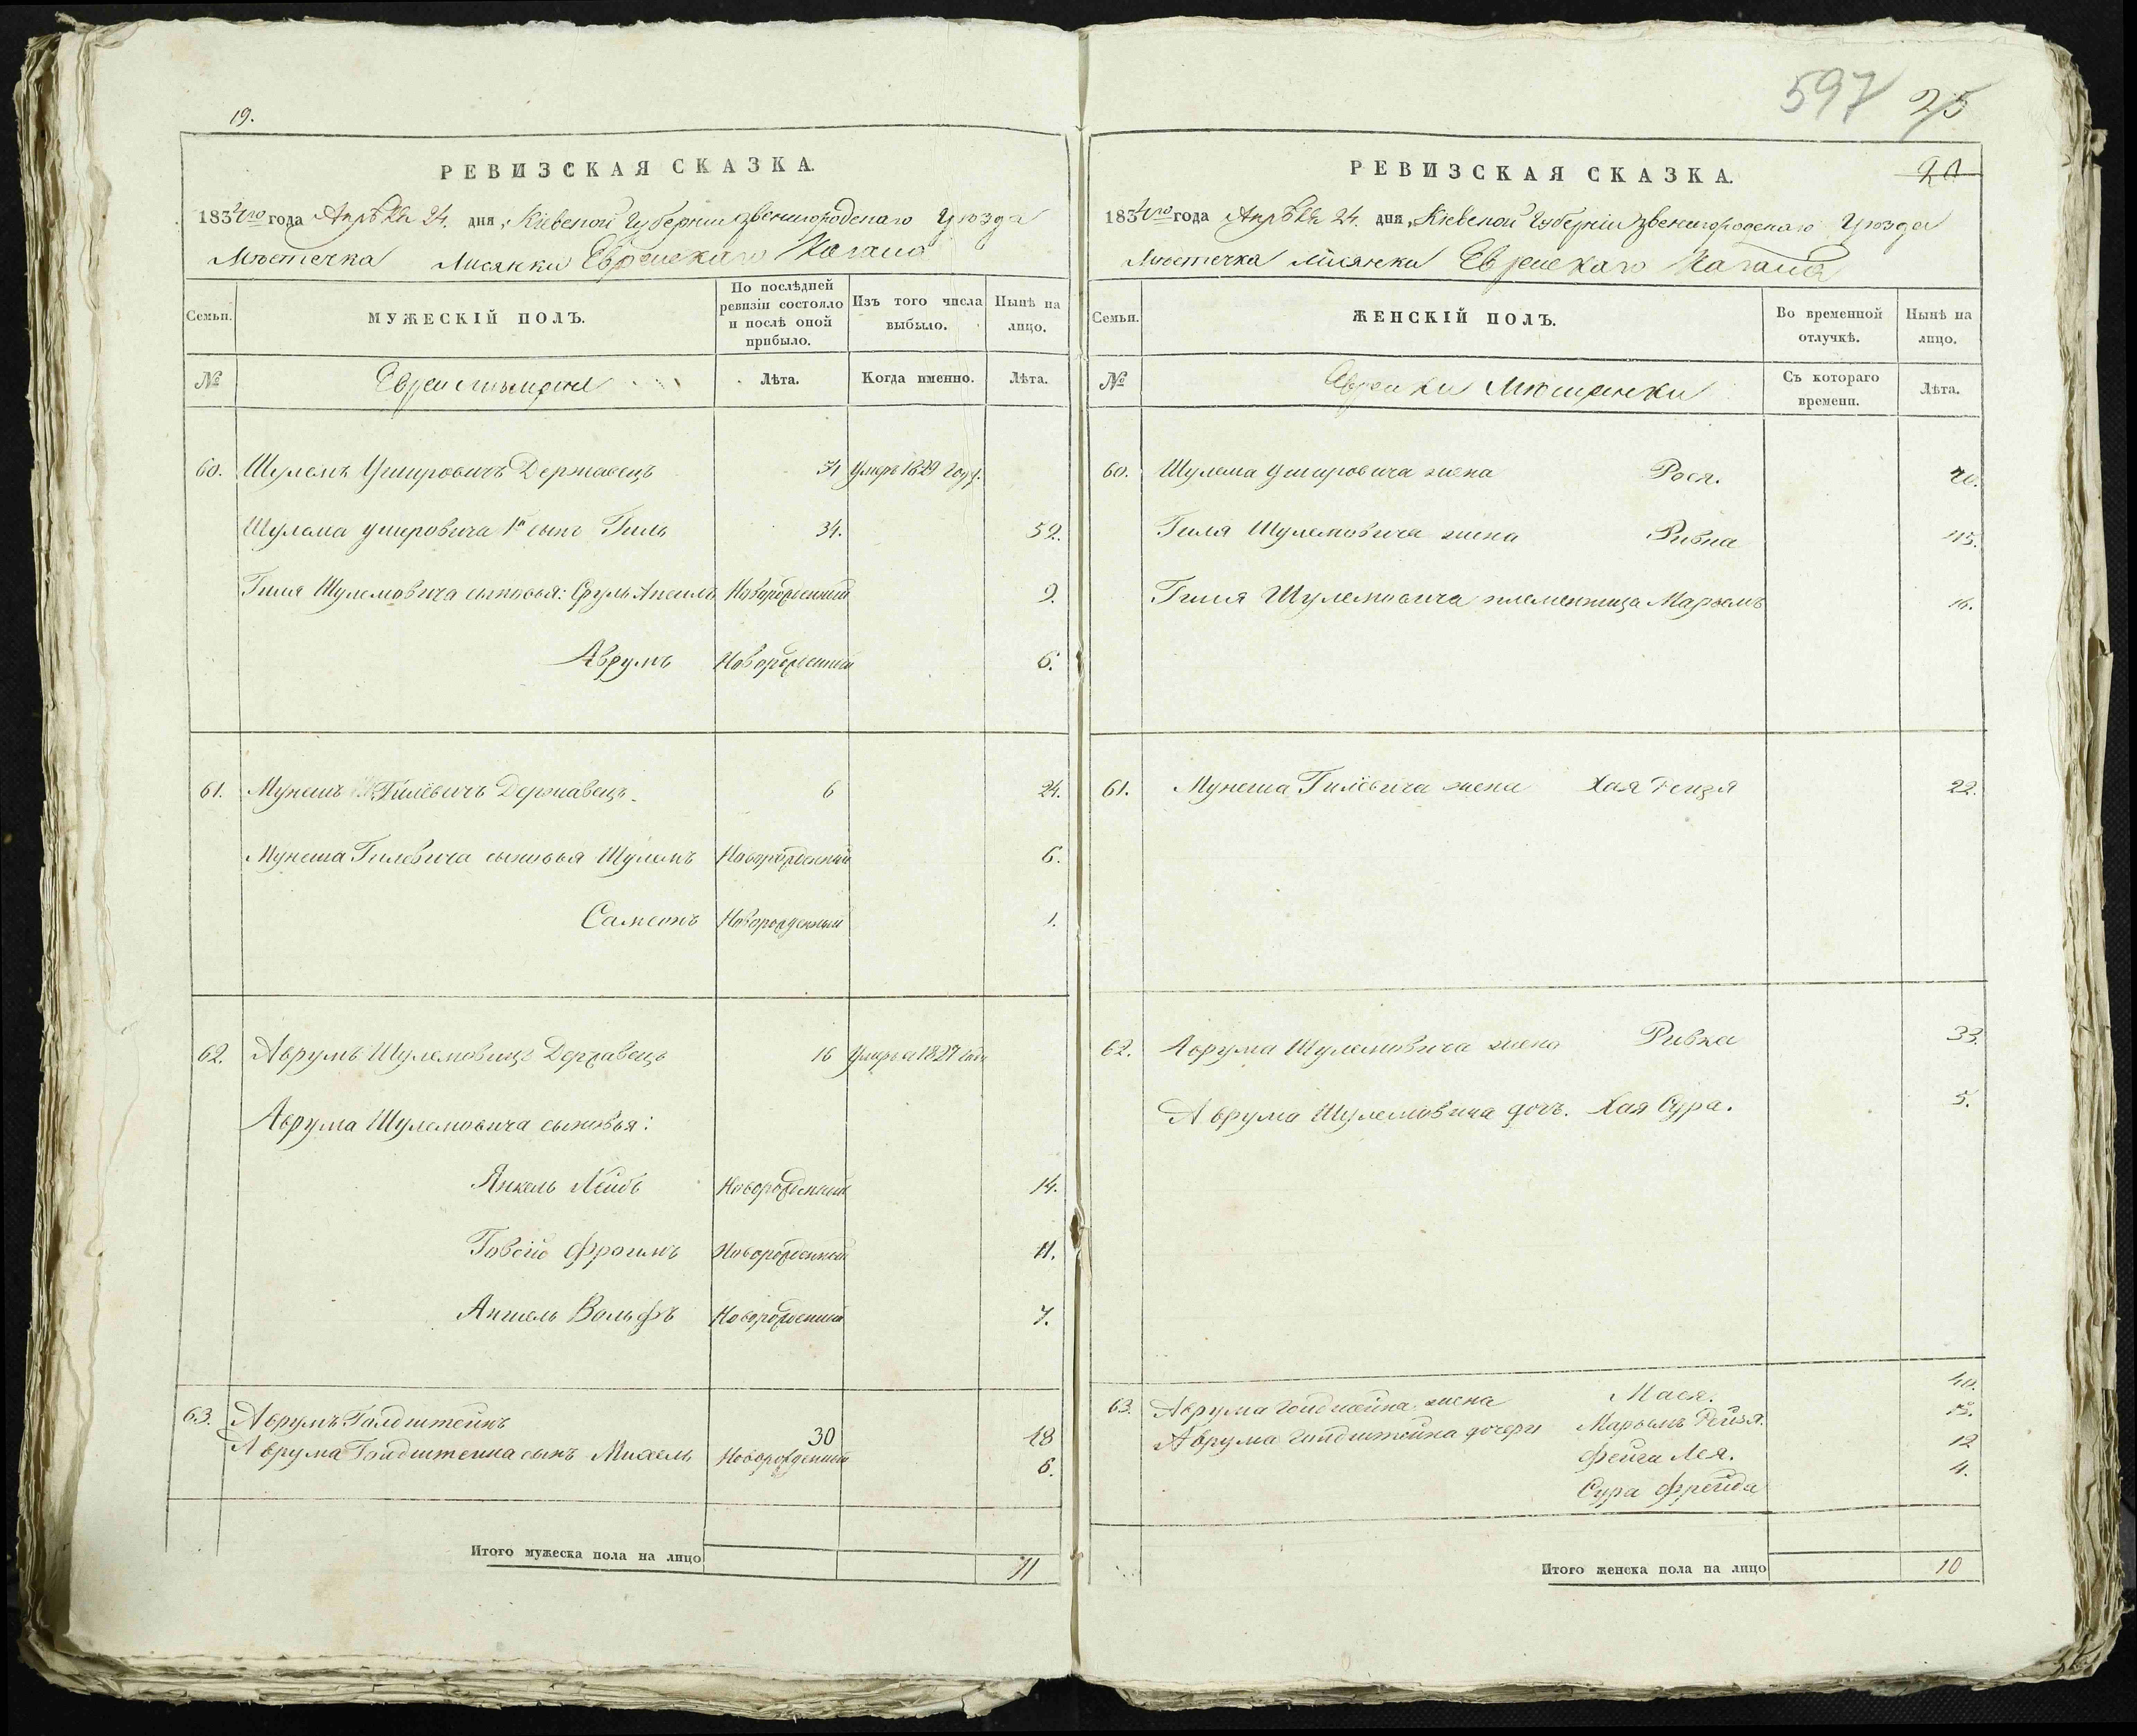 19.
РЕВИЗСКАЯ СКАЗКА.
1834го года Апрѣля 24. дня, Кіевской Губерніи Звенигородскаго Уѣзда
Мѣстечка Лисянки Еврейскаго Кагала
Семьи.
МУЖЕСКІЙ ПОЛЪ.
По послѣдней ревизіи состояло и послѣ оной прибыло.
Изъ того числа выбыло.
Нынѣ на лицо.
№
Евреи мѣщане
Лѣта.
Когда именно.
Лѣта.
60. Шулемъ Ушировичъ Державецъ Умеръ 1829 году.
Шулема Ушировича 1й сынъ Гиль 34. 52.
Гиля Шулемовича сыновья: Сруль Аншель Новорожденный 9.
Аврумъ Новорожденный 6.
61. Мунешъ Гилевичъ Державецъ. 6 24.
Мунеша Гилевича сыновья Шулемъ Новорожденный 6.
Самсонъ Новорожденный 1.
62. Аврумъ Шулемовичъ Державецъ 16 Умеръ 1827 года
Аврума Шулемовича сыновья:
Янкель Лейбъ Новорожденный 14.
Фроимъ Новорожденный 11.
Аншель Вольфъ Новорожденный 7.
63. Аврумъ Голдштейнъ 30 48
Аврума Голдштейна сынъ Михель Новорожденный 6.
Итого мужеска пола на лицо 11
597 25
20
РЕВИЗСКАЯ СКАЗКА.
1834го года Апрѣля 24. дня, Кіевской Губерніи Звенигородскаго Уѣзда
Мѣстечка Лисянки Еврейскаго Кагала
Семьи.
ЖЕНСКІЙ ПОЛЪ.
Во временной отлучкѣ.
Нынѣ на лицо.
№
Еврейки Мѣщанки
Съ котораго времени.
Лѣта.
60. Шулема Ушировича жена Рося. 70.
Гиля Шулемовича жена Ривка 45.
Гиля Шулемовича племеница Марьемъ 16.
61. Мунеша Гилевича жена Хая Рейзя 22.
62. Аврума Шулемовича жена Ривка 33.
Аврума Шулемовича дочь. Хая Сура. 5.
63. Аврума Голдштейна жена Мася. 40.
Аврума Голдштейна дочери Марьемъ Рейзя.
Фейга Лея. 12
Сура Фрейда 4.
Итого женска пола на лицо 10